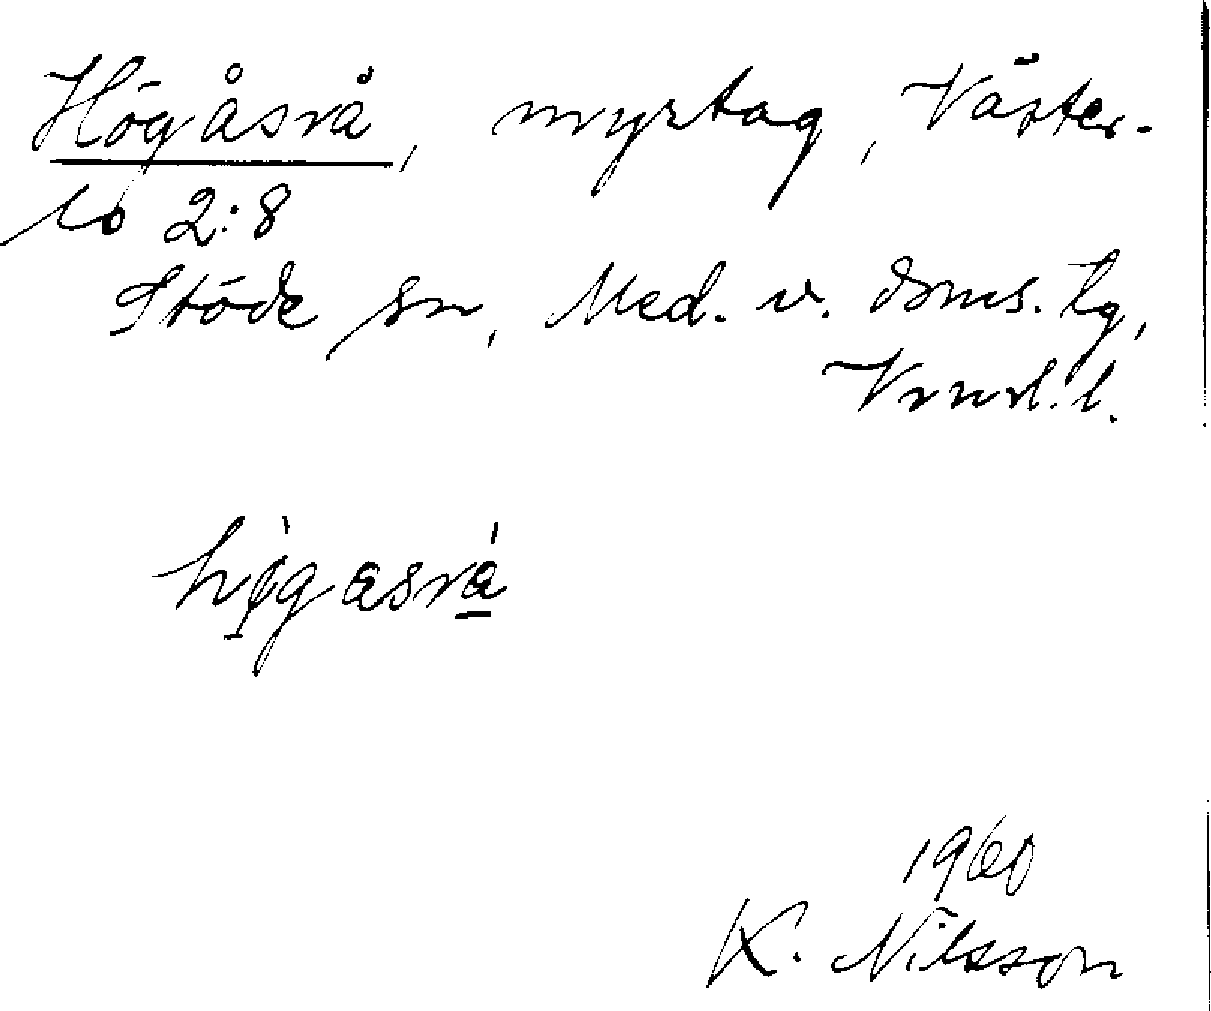 Högåsrå, myrtag, Väster-
lo 2:8
Stöde sn, Med. v. doms. tg,
Vrnrl. l.
hø̀gasrá
1960
K. Nilsson